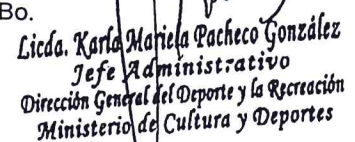 Bo.
Licda. Karla Mariela Pacheco González
Jefe Administrativo
Dirección General del Deporte y la Recreación
Ministerio de Cultura y Deportes